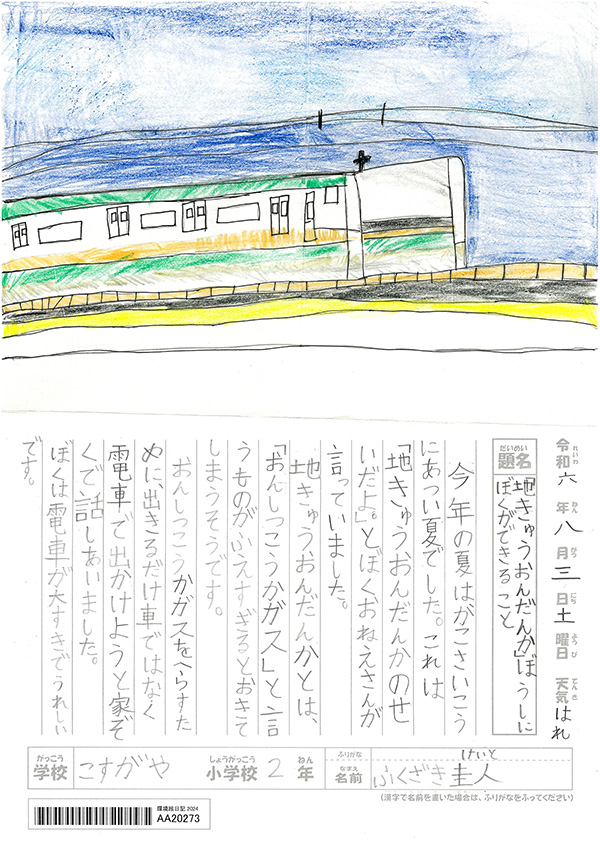 令和六年八月三日土曜日 天気はれ
れいわ ねん がつ にち ようび てんき
だいめい
題名
「地きゅうおんだんか」ぼうしに
ぼくができること
今年の夏はがこさいこう
にあつい夏でした。これは
「地きゅうおんだんかのせ
いだよ。」とぼくおねえさんが
言っていました。
地きゅうおんだんかとは、
「おんしつこうかガス」と言
うものがふえすぎるとおきて
しまうそうです。
おんしつこうかガスをへらすた
めに、出きるだけ車ではなく
電車で出かけようと家ぞ
くで話しあいました。
ぼくは電車が大すきでうれしい
です。
がっこう しょうがっこう ねん ふりがな なまえ けいと
学校 こすがや 小学校 2 年 名前 ふくざき圭人
(漢字で名前を書いた場合は、ふりがなをふってください)
環境絵日記 2024
AA20273